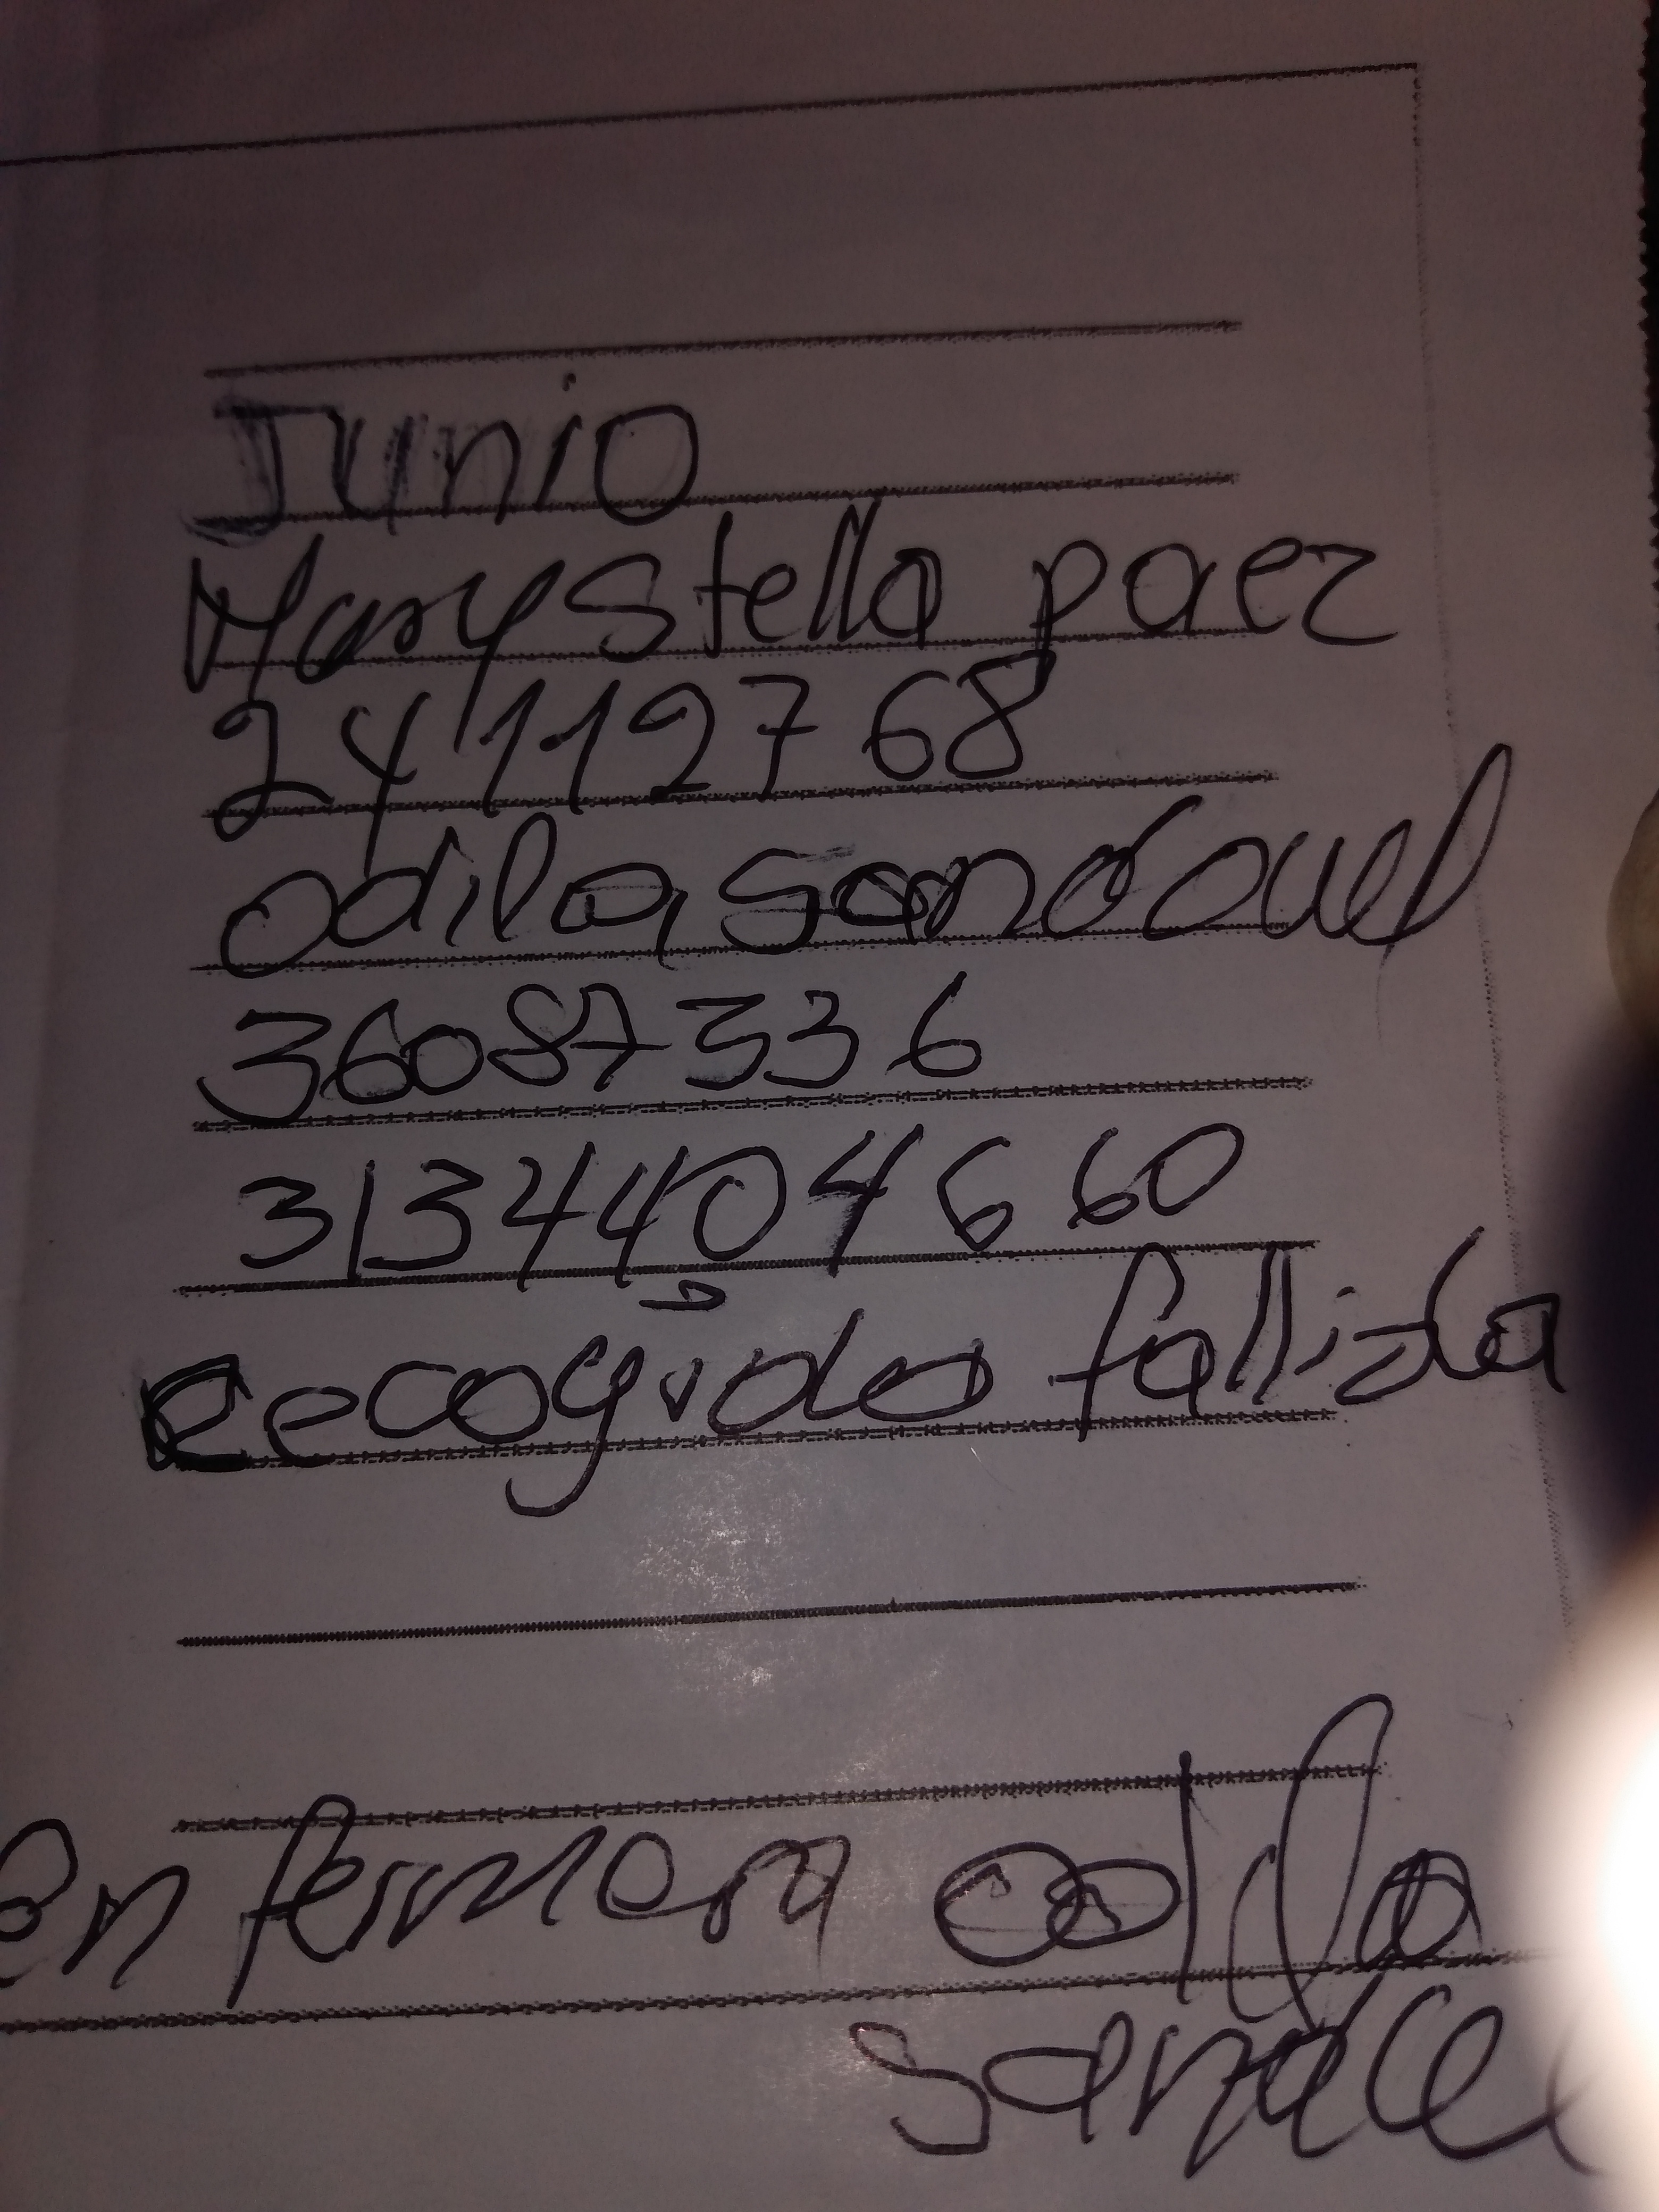 Junio
Mary stella paez
24112768
odila sandoval
36087336
3134404660
Recogida fallida
Enfermera odila